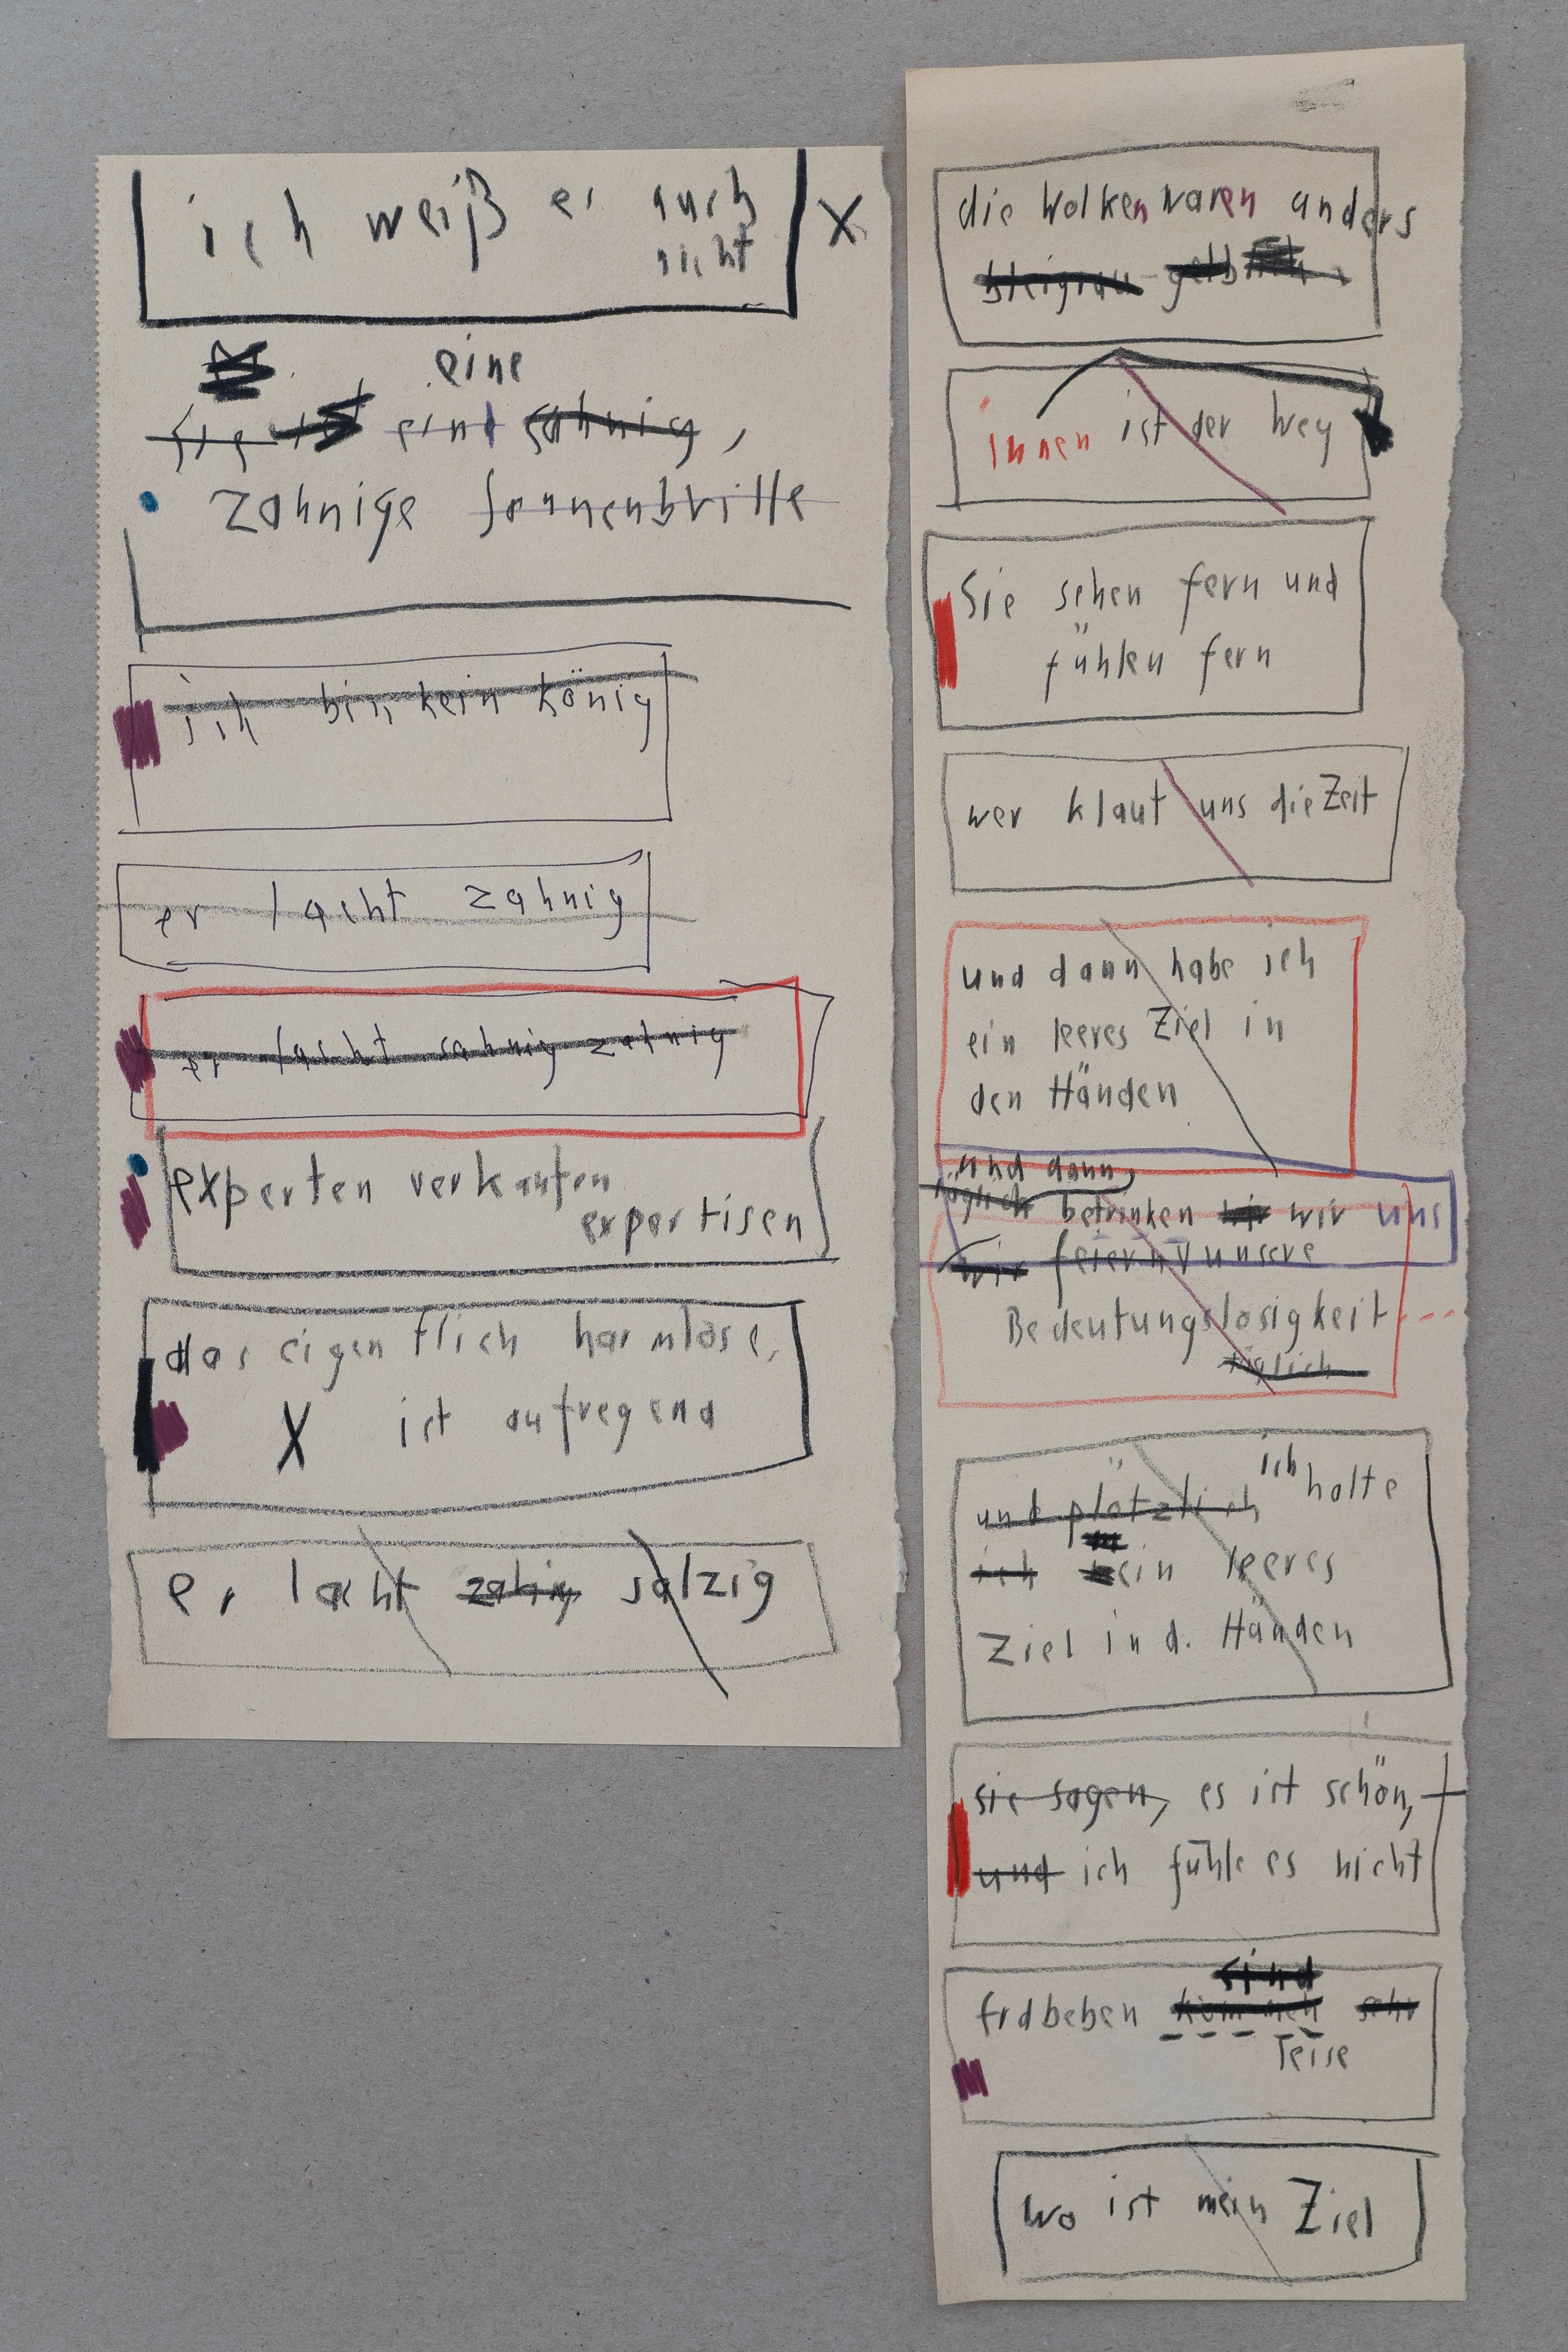 ich weiß es auch
nicht
eine
sie ist eine sahnig,
zahnige Sonnenbrille
ich bin kein könig
er lacht zahnig
er lacht sahnig zahnig
experten verkaufen
expertisen
das eigentlich harmlose,
X ist aufregend
er lacht zahnig salzig
X
die Wolken waren anders
bleigrau-gelb
innen ist der Weg
Sie sehen fern und
fühlen fern
wer klaut uns die Zeit
und dann habe ich
ein leeres Ziel in
den Händen
und dann
täglich betrinken wir wir uns
wir feiern unsere
Bedeutungslosigkeit
täglich
und plötzlich ich halte
ich ein leeres
Ziel in d. Händen
sie sagen, es ist schön,
und ich fühle es nicht
sind
Erdbeben kommen sehr
leise
wo ist mein Ziel